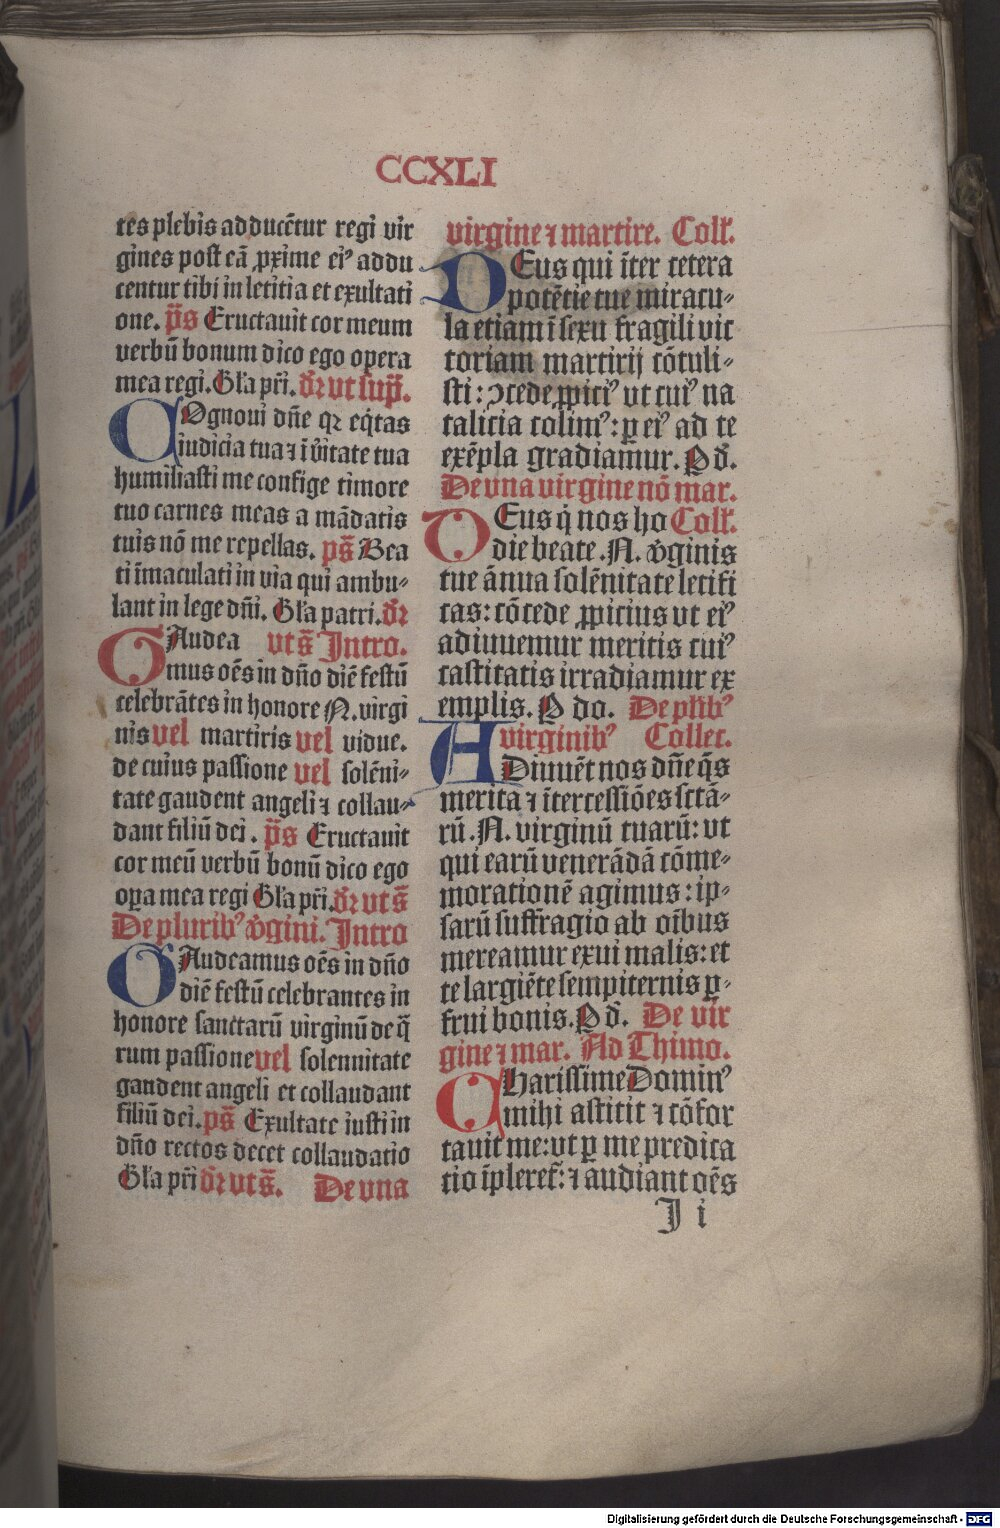 CCXLI
tes plebis adducētur regi vir
gines post eā ꝓxime eiꝰ addu
centur tibi in leticia et exultati
one. p̄s Eructauit cor meum
verbū bonum dico ego opera
mea regi. Gl'a pr̄i. d̄r vt sup̄.
COgnoui dn̄e qꝛ eq̇tas
iudicia tua ⁊ ī v̄itate tua
humiliasti me confige timore
tuo carnes meas a mādatis
tuis nō me repellas. ps̄ Bea
ti īmaculati in via qui ambu⸗
lant in lege dn̄i. Gl'a patri. d̄r
GAudea vts̄ Intro.
mus oēs in dn̄o diē festū
celebrātes in honore N. virgi
nis vel martiris vel vidue.
de cuius passione vel solēni⸗
tate gaudent angeli ⁊ collau⸗
dant filiū dei. p̄s Eructauit
cor meū verbū bonū dico ego
oꝑa mea regi Gl'a pr̄i. d̄r vts̄
De pluribꝰ v̄gini. Intro
GAudeamus oēs in dn̄o
diē festū celebrantes in
honore sanctarū virginū de q̄
rum passione vel solennitate
gaudent angeli et collaudant
filiū dei. ps̄ Exultate iusti in
dn̄o rectos decet collaudatio
Gl'a pr̄i d̄r vts̄. De vna
virgine ⁊ martire. Coll'.
DEus qui īter cetera
potētie tue miracu⸗
la etiam ī sexu fragili vic
toriam martirij cōtuli⸗
sti: ꝯcede ꝓpiciꝰ vt cuiꝰ na
talicia colimꝰ: ꝑ eiꝰ ad te
exēpla gradiamur. P d̄.
De vna virgine nō mar.
DEus q̇ nos ho Coll'.
die beate .N. v̄ginis
tue ānua solēnitate letifi
cas: cōcede ꝓpicius vt eiꝰ
adiuuemur meritis cuiꝰ
castitatis irradiamur ex
emplis. P do. De plibꝰ
Avirginibꝰ Collec.
Diuuēt nos dn̄e q̄s
merita ⁊ ītercessiōes sctā⸗
rū .N. virginū tuarū: vt
qui earū venerādā cōme⸗
morationē agimus: ip⸗
sarū suffragio ab oībus
mereamur exui malis: et
te largiēte sempiternis ꝑ⸗
frui bonis. P d̄. De vir
gine ⁊ mar. Ad Thimo.
CHarissime Dominꝰ
mihi astitit ⁊ cōfor
tauit me: vt ꝑ me predica
tio īpleret': ⁊ audiant oēs
I i
Digitalisierung gefördert durch die Deutsche Forschungsgemeinschaft - DFG